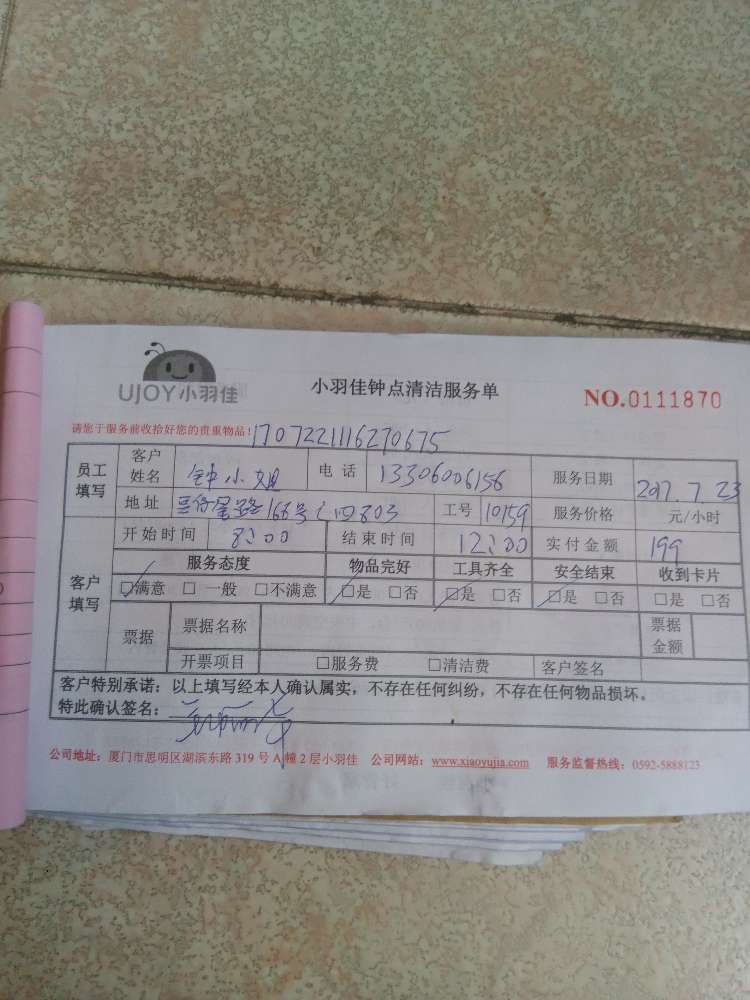 UJOY小羽佳
小羽佳钟点清洁服务单
NO.0111870
请您于服务前收拾好您的贵重物品!
1707221116270675
员工填写 客户姓名 钟小姐 电话 13306006156 服务日期 2017.7.23
地址 路166号之四803 工号 10159 服务价格 元/小时
开始时间 8:00 结束时间 12:00 实付金额 199
客户填写 服务态度 物品完好 工具齐全 安全结束 收到卡片
☑满意 □ 一般 □不满意 ☑是 □否 ☑是 □否 ☑是 □否 □是 □否
票据 票据名称 票据金额
开票项目 □服务费 □清洁费 客户签名
客户特别承诺：以上填写经本人确认属实，不存在任何纠纷，不存在任何物品损坏。
特此确认签名：
公司地址：厦门市思明区湖滨东路 319 号 A 幢 2 层小羽佳 公司网站：www.xiaoyujia.com 服务监督热线：0592-5888123